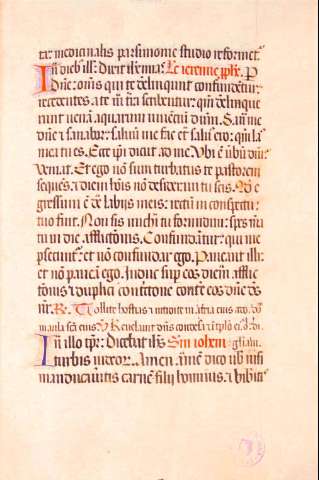 ta: medicinalis parsimonie studio reformet.
In dieb; ill: Dixit ieremia: Lc ieremie pph̄e. D
Dn̄e: om̄s qui te derelinquunt confundētur:
recedentes. a te in t̄ra scribentur: qm̄ derelique
runt uenā aquarum uiuentiū dūm. Sana me
dn̄e ⁊ sanabor: saluū me fac et saluꝰ ero: qm̄ laꝰ
mea tu es. Ecce ip̄i dicūt ad me Ubi ē uerbū dn̄i
ueniat. Et ego nō sum turbatus te pastorem
sequēs: ⁊ diem hōis nō desideraui tu scis. Qd̄ e
gressum ē de labijs meis: rectū in conspectu
tuo fuit. Non sis michi tu formidini: spes mea
tu in die afflictionis. Confundātur: qui me
persecuntʳ: et nō confundar ego. Paueant illi:
et nō paueā ego. Induc sup̄ eos diem afflic
tionis: ⁊ duplici contritione contere eos dn̄e dꝰ
nr̄. Tollite hostias ⁊ introite in atria eius
aula sc̄ā eius Reuelauit dn̄s condensa ⁊ in tp̄lo eiꝰ
In illo tp̄r: Dicebat ih̄s Sm̄ ioh̄em
turbis iudeorꝝ. Amen amē dico uob̄ nisi
manducaueritis carnē filij hominis: ⁊ biberitis